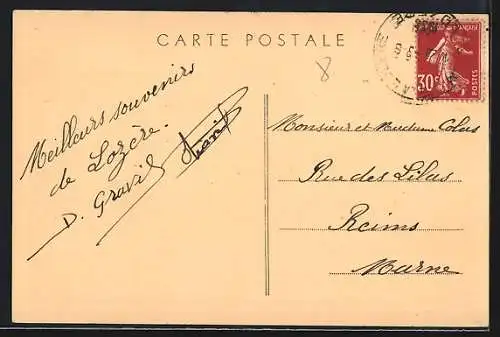 CARTE POSTALE
8
30c
POSTES
Meilleurs souvenirs
de Lozère.
D. Gravil
Monsieur et Madame Colas
Rue des Lilas
Reims
Marne